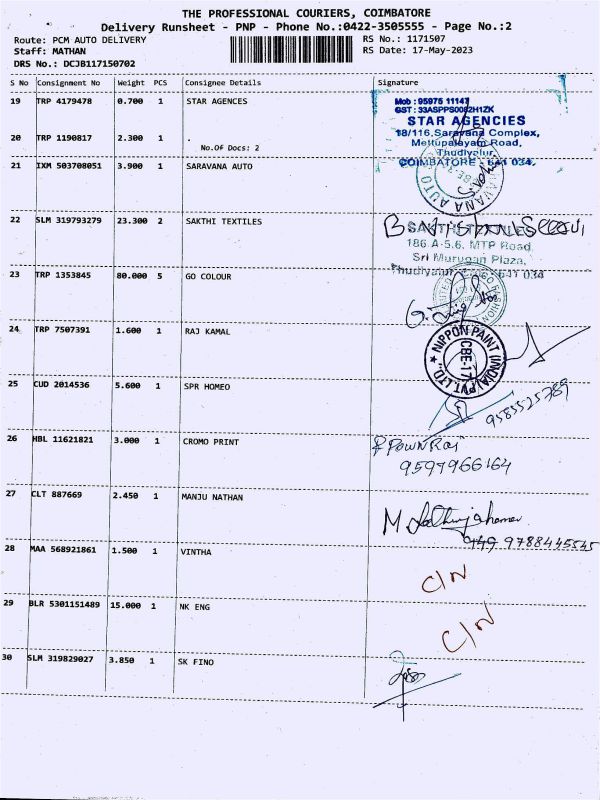 THE PROFESSIONAL COURIERS, COIMBATORE
Delivery Runsheet - PNP - Phone No.:0422-3505555 - Page No.:2
Route: PCM AUTO DELIVERY
RS No.: 1171507
Staff: MATHAN
RS Date: 17-May-2023
DRS No.: DCJB117150702
S No Consignment No Weight PCS Consignee Details Signature
19 TRP 4179478 0.700 1 STAR AGENCIES
Mob : 95975 11147
GST : 33ASPPS0082H1ZK
STAR AGENCIES
18/116, Saravana Complex,
Mettupalayam Road,
Thudiyalur,
COIMBATORE - 641 034.
20 TRP 1190817 2.300 1 .
No.Of Docs: 2
21 IXM 503708051 3.900 1 SARAVANA AUTO
22 SLM 319793279 23.300 2 SAKTHI TEXTILES
SAKTHI TEXTILES
186 A-5,6, MTP Road,
Sri Murugan Plaza,
Thudiyalur 641 034
23 TRP 1353845 80.000 5 GO COLOUR
24 TRP 7507391 1.600 1 RAJ KAMAL
NIPPON PAINT (INDIA) PVT. LTD. ★
CBE-17
25 CUD 2014536 5.600 1 SPR HOMEO
9585525789
26 HBL 11621821 3.000 1 CROMO PRINT
PownRaj
9597966164
27 CLT 887669 2.450 1 MANJU NATHAN
9788445545
28 MAA 568921861 1.500 1 VINTHA
C/N
29 BLR 5301151489 15.000 1 NK ENG
C/N
30 SLM 319829027 3.850 1 SK FINO